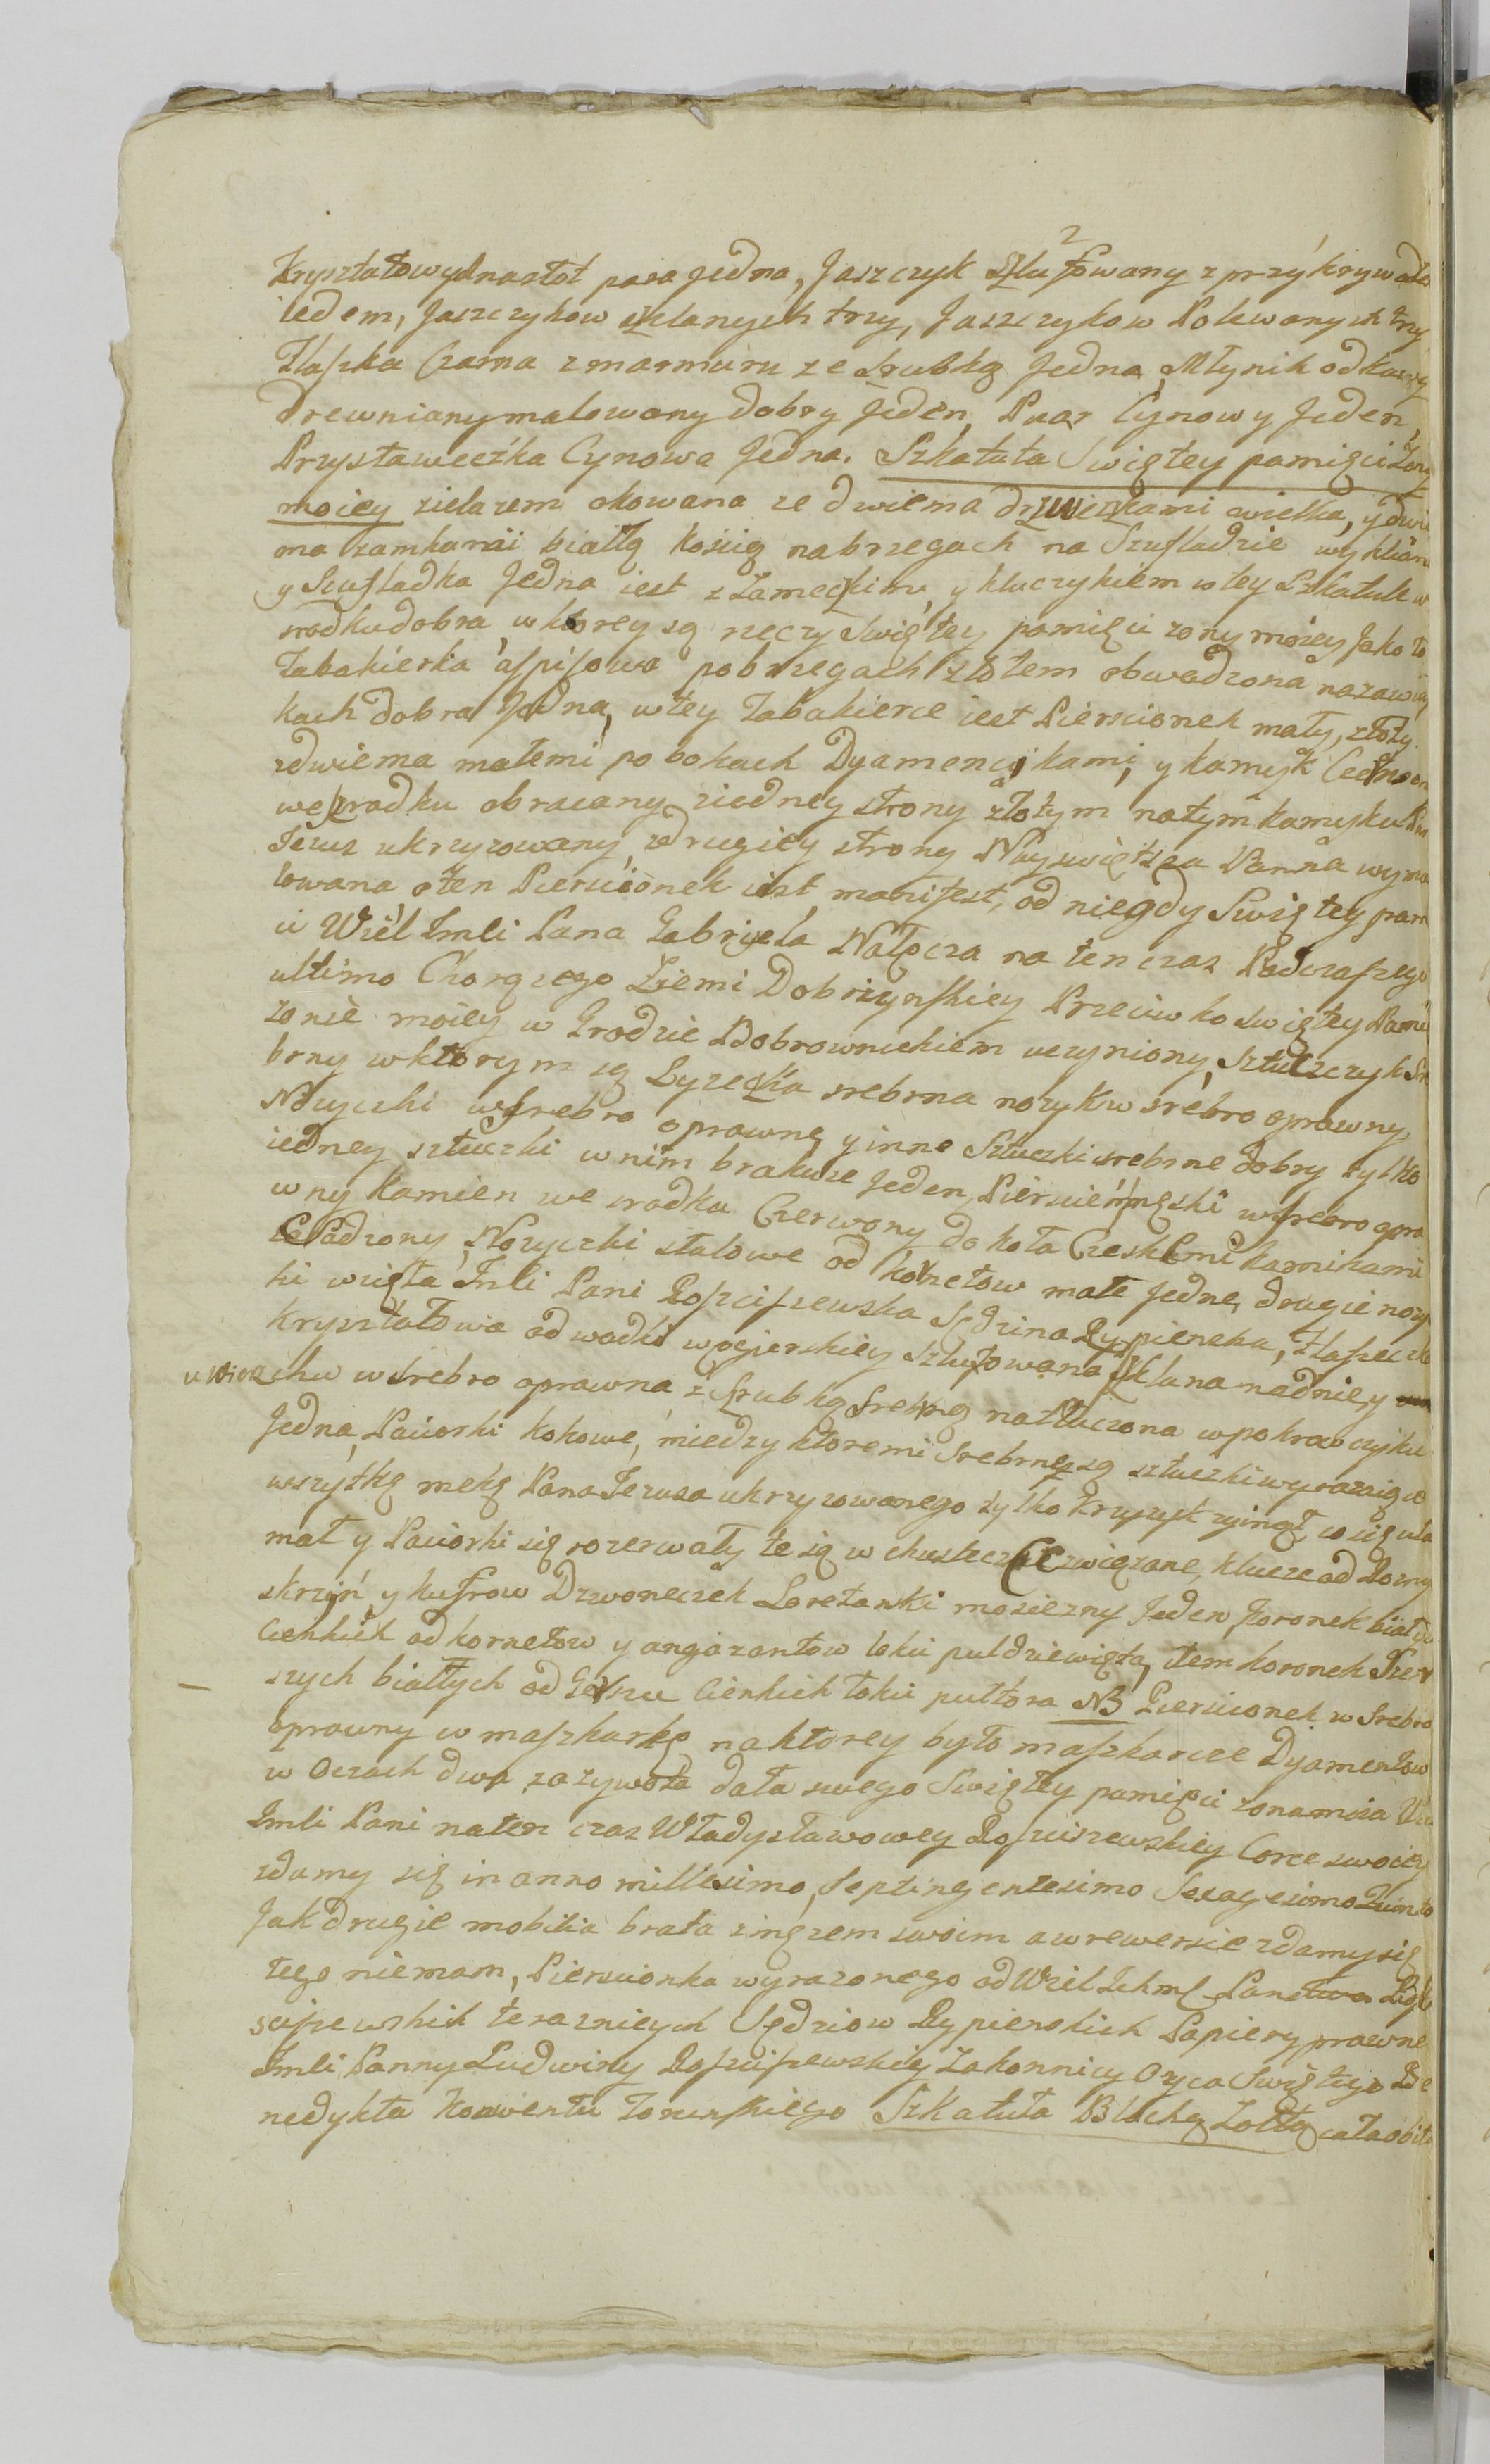 2
Kryształowych na stoł para Jedna, Jaszczyk Szlufowany z przykrywadł
ieden, Jaszczykow szklanych trzy, Jaszczykow Polewanych trzy
Flaszka Czarna z marmuru ze srubką Jedna, Młynik od kawy
drewniany malowany dobry Jeden, Puar Cynowy Jeden,
Przystaweczka Cynowa Jedna. Szkatuła Swiętey pamięci Zony
moiey zielazem okowana ze dwiema drzwiczkami wielka, y dwi
ma zamkami białą kością na brzegach na Szufladzie wykłan
y Szufladka Jedna iest z Zameczkim, y kluczykiem w tey Szkatule w
srodku dobra, w ktorey są rzeczy swiętey pamięci zony moiey Jako to
Tabakierka aspisowa po brzegach złotem obwadzona na zawias
kach dobra Jedna, w tey Tabakierce iest Pierscionek mały, złoty
z dwiema małemi po bokach Dyamencikami, y kamyk
we srodku obracany z iedney strony złotym na tym kamyku Pan
Jezus ukrzyzowany, z drugiey strony Nayswiętsza Panna wyma
lowana o ten Pierscionek iest manifest, od niegdy Swiętey pam
ci Wiel Jmci Pana Gabryela Nałęcza na ten czas Podczaszego
ultimo Chorązego Ziemi Dobrzynskiey Przeciwko swiętey Pami
zonie moiey w Grodzie Bobrownickiem uczyniony, Sztucczyk Sr
brny w ktorym są Łyzeczka srebrna nozyk w srebro oprawny,
Nozyczki w srebro oprawne, y inne Sztuczki srebrne dobry tylko
iedney sztuczki w nim brakuie Jeden, Pierscień męski w srebro opra
wny kamien we srodku Czerwony do koła Czeskiemi kamikami
sadzony, Nozyczki stalowe od kornetow małe Jedne, drugie nozy
ki wzięła Jmci Pani Rosciszewska Sędzina Rypienska, Flaszeczka
Kryształowa od wodki węgierskiey Szlufowana Szklana na dnie, y
u wierzchu w srebro oprawna z Srubką Srebrną natłuczona w pokrowczyku
Jedna, Paciorki kokowe, miedzy ktoremi Srebrne są sztuczki wyrazaiące
wszystkę mękę Pana Jezusa ukrzyzowanego tylko krzyzyk zginął, co się uła
mał y Paciorki się rozerwały te są w chusteczce związane, klucze od Rozny
skrzyń y kufrow Dzwoneczek Loretanski mosiezny Jeden, Koronek białych
Cienkich od kornetow y angazantow łokci puldziewięta, item koronek Szer
szych białych od Cienkich łokci pułtora NB Pierscionek w Srebro
oprawny w maszkarkę na ktorey było maszkarce Dyamentow
w Oczach dwa, za zywota dała swego Swiętey pamięci zona moia Wie
Jmci Pani na ten czas Władysławowey Rosciszewskiey Corce swoiey
zdamy się in anno millesimo, Septingentesimo Sexagesimo Quinto
Jak drugie mobilia brała z męzem swoim a w rewersie zdamy się
tego niemam, Pierscionka wyrazonego od Wiel Ichm Panstwa Ro
sciszewskich teraznieych Sędziow Rypienskich Papiery prawne
Jmci Panny Ludwiny Rosciszewskiey Zakonnicy Oyca Swiętego Be
nedykta Konwentu Torunskiego Szkatuła Blachą Zołtą cała obita